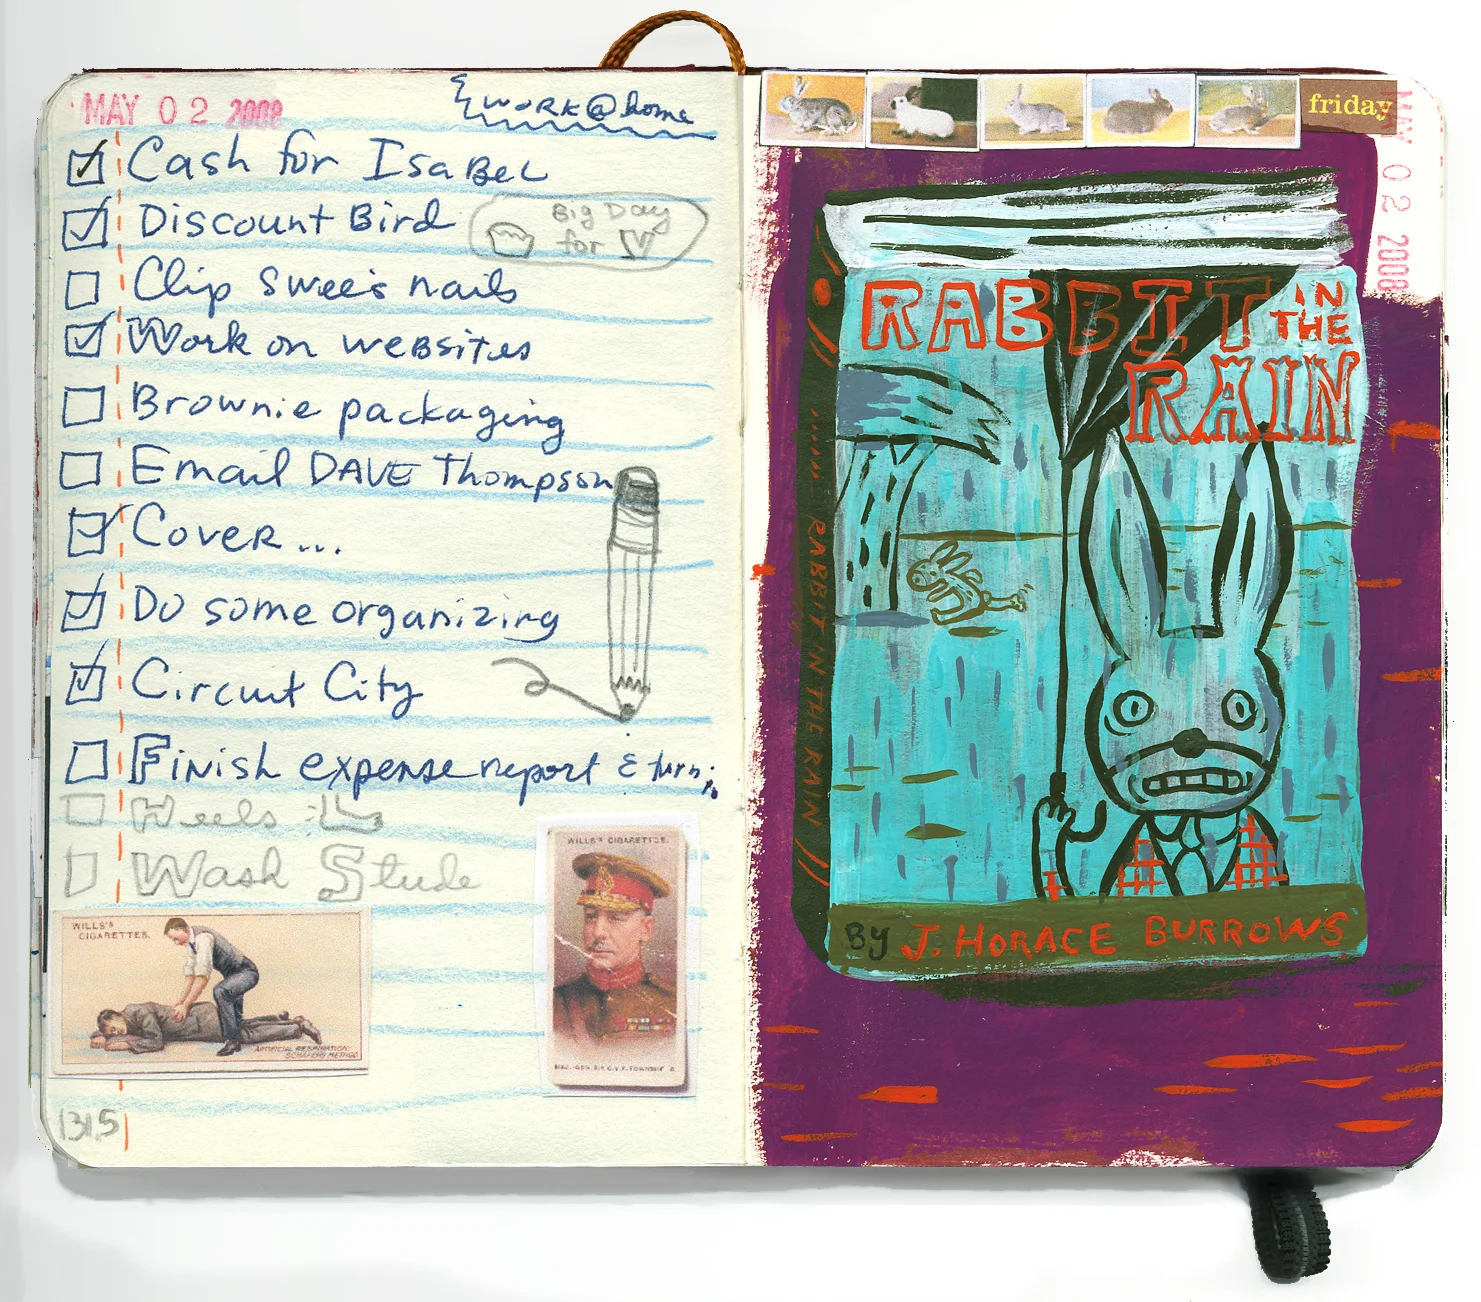 MAY 02 2008
WORK@home
Cash for IsaBeL
Discount Bird
Big Day
for
Clip Swee's nails
Work on weBsites
Brownie packaging
Email DAVE Thompson
Cover...
Do some organizing
Circuit City
Finish expense report & turn in
Heels
Wash Stude
WILL'S CIGARETTES.
WILLS'S
CIGARETTES.
ARTIFICIAL RESPIRATION:
SCHAFER'S METHOD.
1315
friday
MAY 02 2008
RABBIT IN
THE
RAIN
RABBIT IN THE RAIN
By J. HORACE BURROWS